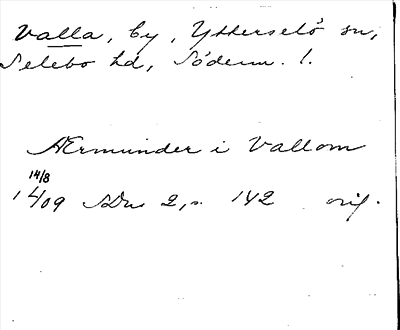 Valla, by, Ytterselö sn,
Selebo hd, Söderm. l.
Ærmunder i Vallom
14/8
1409 SDns 2, s. 142 orig.